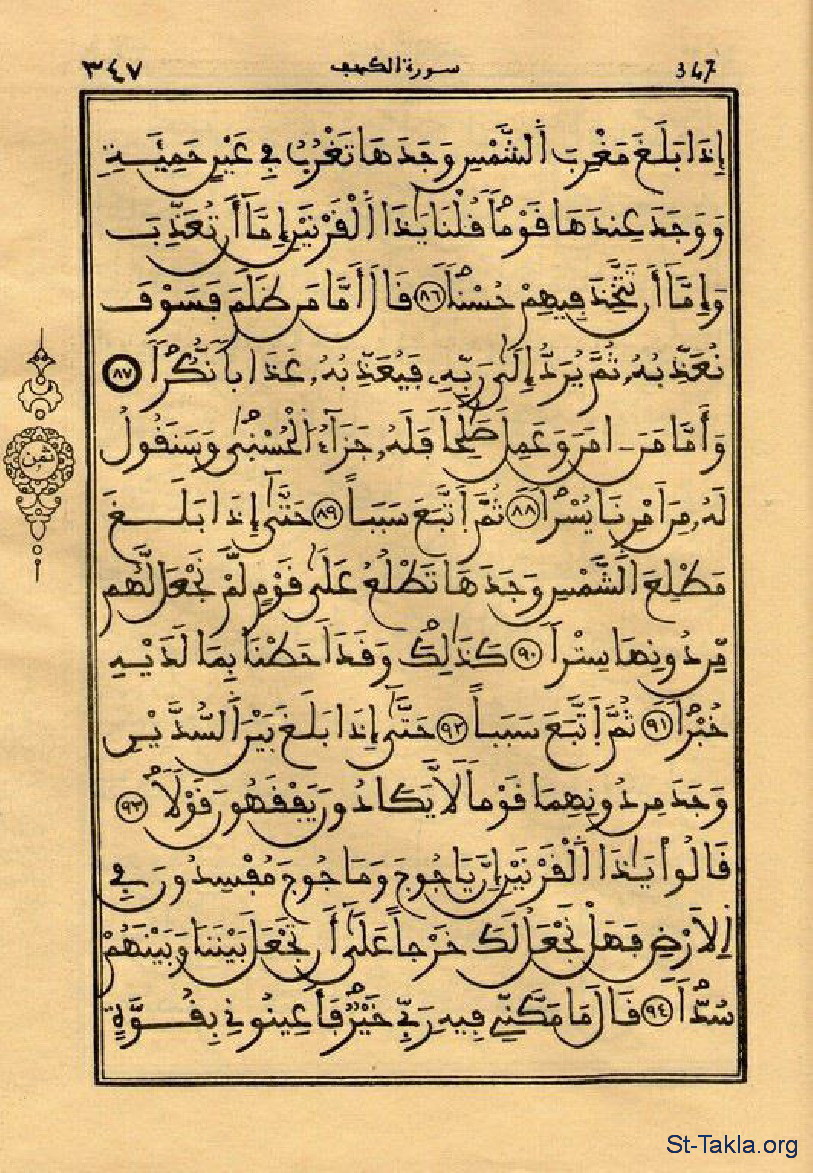 ٣٤٧ سورة الكهف 347
إِذَا بَلَغَ مَغْرِبَ اَ۬لشَّمْسِ وَجَدَهَا تَغْرُبُ فِے عَيْنٍ حَمِئَةٍ
وَوَجَدَ عِندَهَا قَوْماٗ قُلْنَا يَٰذَا اَ۬لْقَرْنَيْنِ إِمَّآ أَن تُعَذِّبَ
وَإِمَّآ أَن تَتَّخِذَ فِيهِمْ حُسْناٗ ٨٦ قَالَ أَمَّا مَن ظَلَمَ فَسَوْفَ
نُعَذِّبُهُۥ ثُمَّ يُرَدُّ إِلَىٰ رَبِّهِۦ فَيُعَذِّبُهُۥ عَذَاباٗ نُّكُراٗ ٨٧
ثمن
وَأَمَّا مَنَ اٰمَنَ وَعَمِلَ صَٰلِحاٗ فَلَهُۥ جَزَآءُ اُ۬لْحُسْنَىٰ وَسَنَقُولُ
لَهُۥ مِنَ اَمْرِنَا يُسْراٗ ٨٨ ثُمَّ اَ۪تَّبَعَ سَبَباً ٨٩ حَتَّىٰٓ إِذَا بَلَغَ
مَطْلِعَ اَ۬لشَّمْسِ وَجَدَهَا تَطْلُعُ عَلَىٰ قَوْمٍ لَّمْ نَجْعَل لَّهُم
مِّن دُونِهَا سِتْراٗ ٩٠ كَذَٰلِكَ وَقَدَ اَحَطْنَا بِمَا لَدَيْهِ
خُبْراٗ ٩١ ثُمَّ اَ۪تَّبَعَ سَبَباً ٩٢ حَتَّىٰٓ إِذَا بَلَغَ بَيْنَ اَ۬لسُّدَّيْنِ
وَجَدَ مِن دُونِهِمَا قَوْماٗ لَّا يَكَادُونَ يَفْقَهُونَ قَوْلاٗ ٩٣
قَالُواْ يَٰذَا اَ۬لْقَرْنَيْنِ إِنَّ يَاجُوجَ وَمَاجُوجَ مُفْسِدُونَ فِے
اِ۬لَارْضِ فَهَلْ نَجْعَلُ لَكَ خَرْجاً عَلَىٰٓ أَن تَجْعَلَ بَيْنَنَا وَبَيْنَهُمْ
سُدّاٗ ٩٤ قَالَ مَا مَكَّنِّے فِيهِ رَبِّے خَيْرٌ فَأَعِينُونِے بِقُوَّةٍ
St-Takla.org